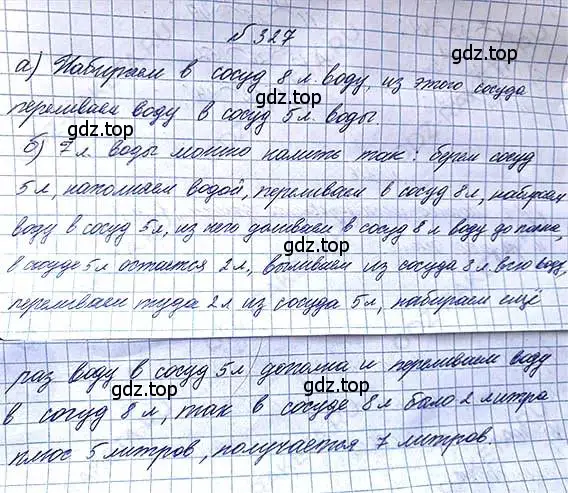 № 327
а) Набираем в сосуд 8 л воду, из этого сосуда
gdz.top
переливаем воду в сосуд 5 л воды.
gdz.top
б) 7 л воды можно налить так: берем сосуд
gdz.top
5 л, наполняем водой, переливаем в сосуд 8 л, набираем
воду в сосуд 5 л, из него доливаем в сосуд 8 л воду до полна,
gdz.top
в сосуде 5 л остается 2 л, выливаем из сосуда 8 л всю воду,
переливаем туда 2 л из сосуда 5 л, набираем ещё
gdz.top
раз воду в сосуд 5 л дополна и переливаем воду
gdz.top
в сосуд 8 л, так в сосуде 8 л было 2 литра
плюс 5 литров, получается 7 литров.
gdz.top